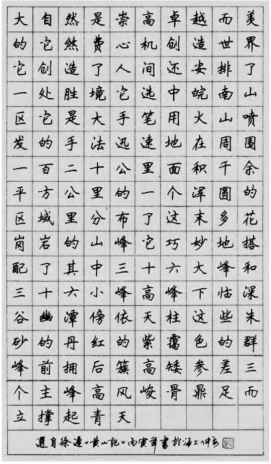 大自然是崇高卓越而美
的它煞费心机创造世界
它创造了人间还安排了
一处胜境它选中皖南山
区它是大手笔用火山喷
发的手法迅速地在周围
一百二十公里面积千余
平方公里的一个浑圆的
区域里分布了这末多花
岗岩的山峰它巧妙地搭
配了其中三十六大峰和
三十六小峰高峰下临深
谷幽潭傍依天柱这些朱
砂的丹红的紫霭色的群
峰前拥后簇高矮参差三
个主峰高风峻骨鼎足而
立撑起青天
选自徐迟“黄山记”丙寅年书于